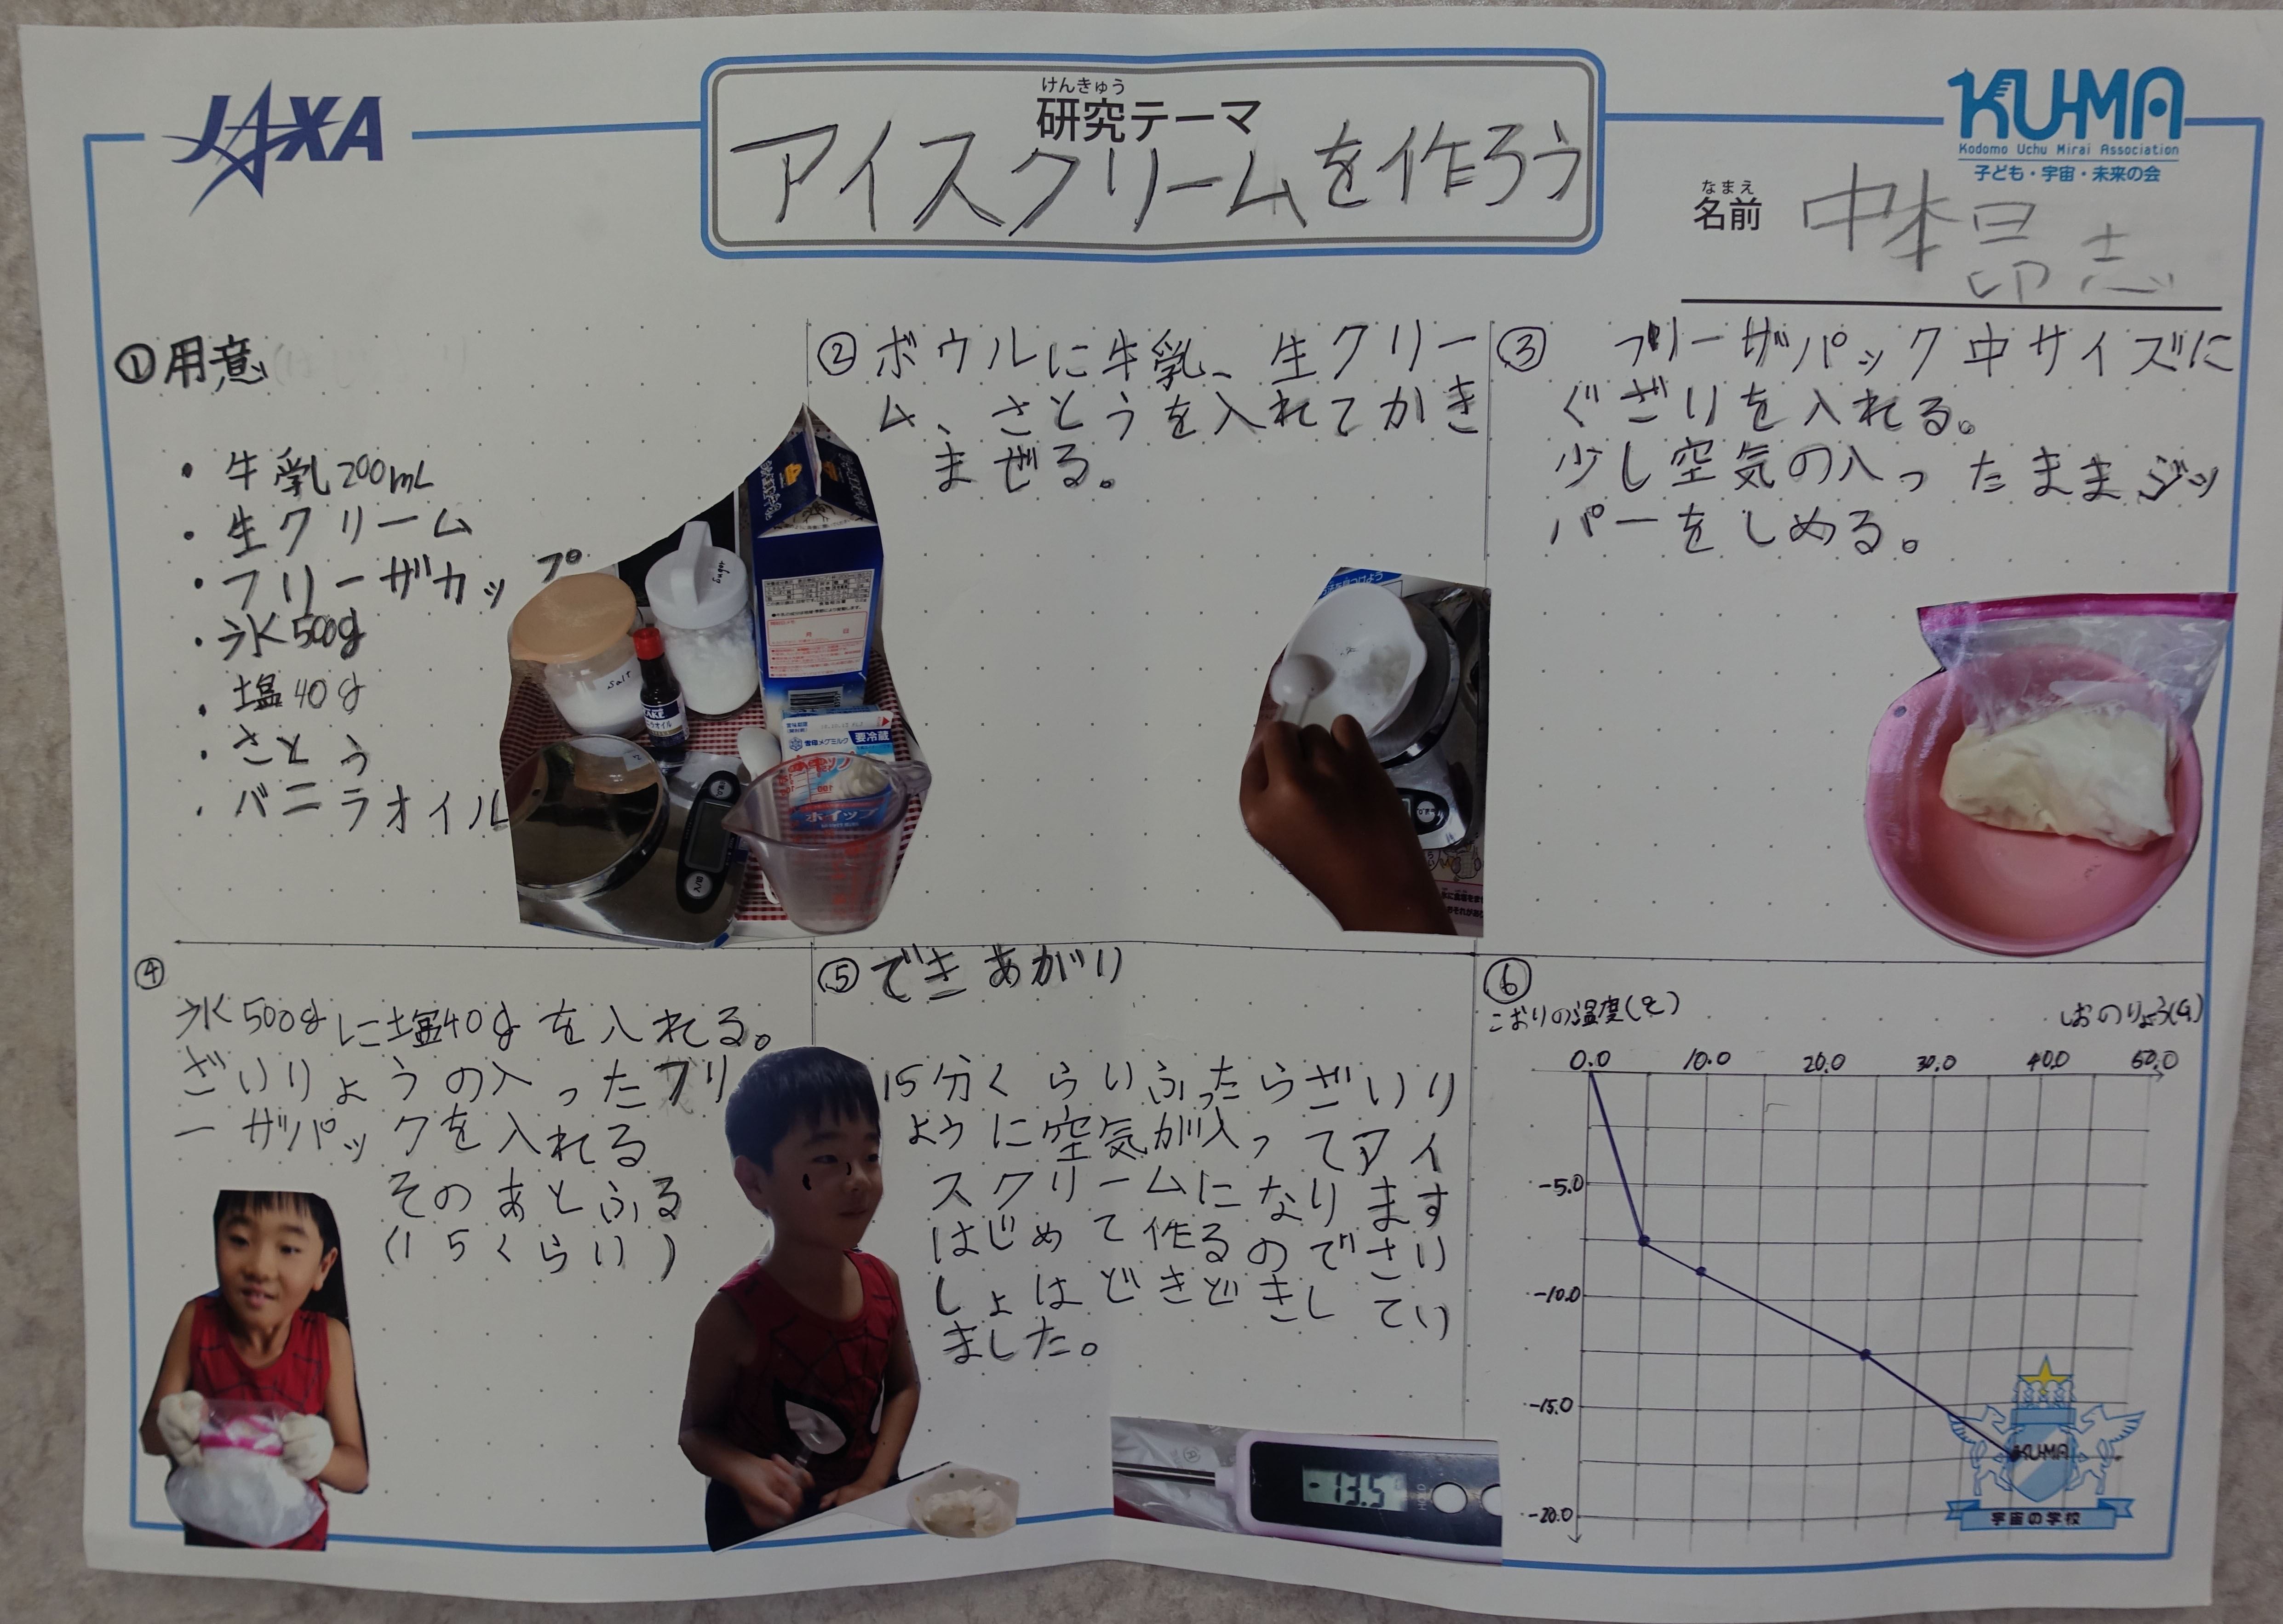 JAXA
けんきゅう
研究テーマ
アイスクリームを作ろう
KUMA
Kodomo Uchu Mirai Association
子ども・宇宙・未来の会
なまえ
名前 中本昴志
①用意
・牛乳200mL
・生クリーム
・フリーザカップ
・氷500g
・塩40g
・さとう
・バニラオイル
Salt
Sugar
要冷蔵
雪印メグミルク
ホイップ
②ボウルに牛乳、生クリー
ム、さとうを入れてかき
まぜる。
③フリーザパック中サイズに
ぐざりを入れる。
少し空気の入ったままジッ
パーをしめる。
④
氷500gに塩40gを入れる。
ざいりょうの入ったフリ
ーザパックを入れる
そのあとふる
(15くらい)
⑤できあがり
15分くらいふったらざいり
ように空気が入ってアイ
スクリームになります
はじめて作るのでさい
しょはどきどきしてい
ました。
-13.5
HOLD
⑥
こおりの温度(℃)
しおのりょう(g)
0.0 10.0 20.0 30.0 40.0 50.0
-5.0
-10.0
-15.0
-20.0
KUMA
宇宙の学校